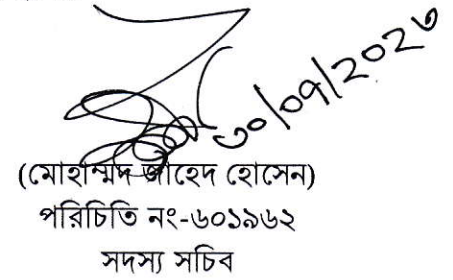 ৩০/০৭/২০২৩
(মোহাম্মদ জাহেদ হোসেন)
পরিচিতি নং-৬০১৯৬২
সদস্য সচিব